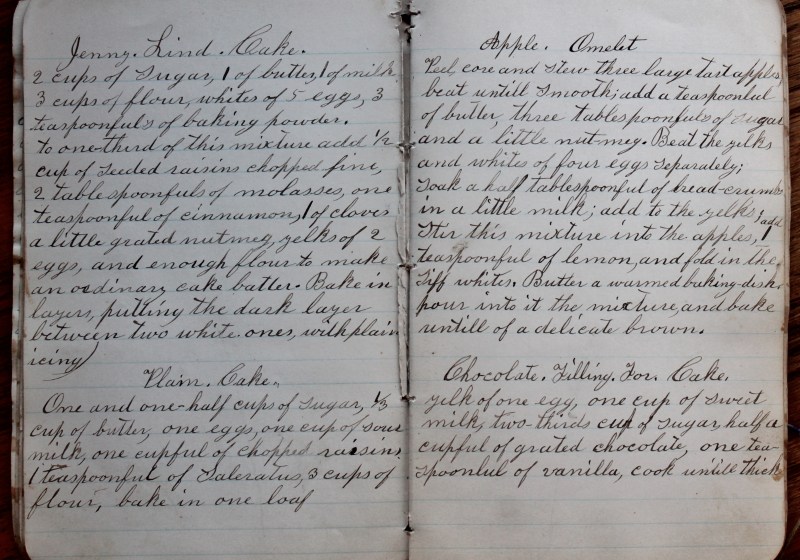 Jenny. Lind. Cake.
2 cups of sugar, 1 of butter, 1 of milk
3 cups of flour, whites of 5 eggs, 3
teaspoonfuls of baking powder.
to one-third of this mixture add 1/2
cup of seeded raisins chopped fine,
2 tablespoonfuls of molasses, one
teaspoonful of cinnamon, 1 of cloves
a little grated nutmeg, yelks of 2
eggs, and enough flour to make
an ordinary cake batter. Bake in
layers, putting the dark layer
between two white ones, with plain
icing)
Plain. Cake.,
One and one-half cups of sugar, 1/3
cup of butter, one eggs, one cup of sour
milk, one cupful of chopped raisins
1 teaspoonful of Saleratus, 3 cups of
flour, bake in one loaf
Apple. Omelet
Peel, core and stew three large tart apples,
beat untill smooth; add a teaspoonful
of butter, three tablespoonfuls of sugar
and a little nut-meg. Beat the yelks
and whites of four eggs separately;
soak a half tablespoonful of bread-crumbs
in a little milk; add to the yelks, add
Stir this mixture into the apples, 1
teaspoonful of lemon, and fold in the
stiff whites. Butter a warmed baking-dish.
pour into it the mixture, and bake
untill of a delicate brown.
Chocolate. Filling. For. Cake.
yelk of one egg, one cup of sweet
milk, two-thirds cup of sugar, half a
cupful of grated chocolate, one tea-
spoonful of vanilla, cook untill thick